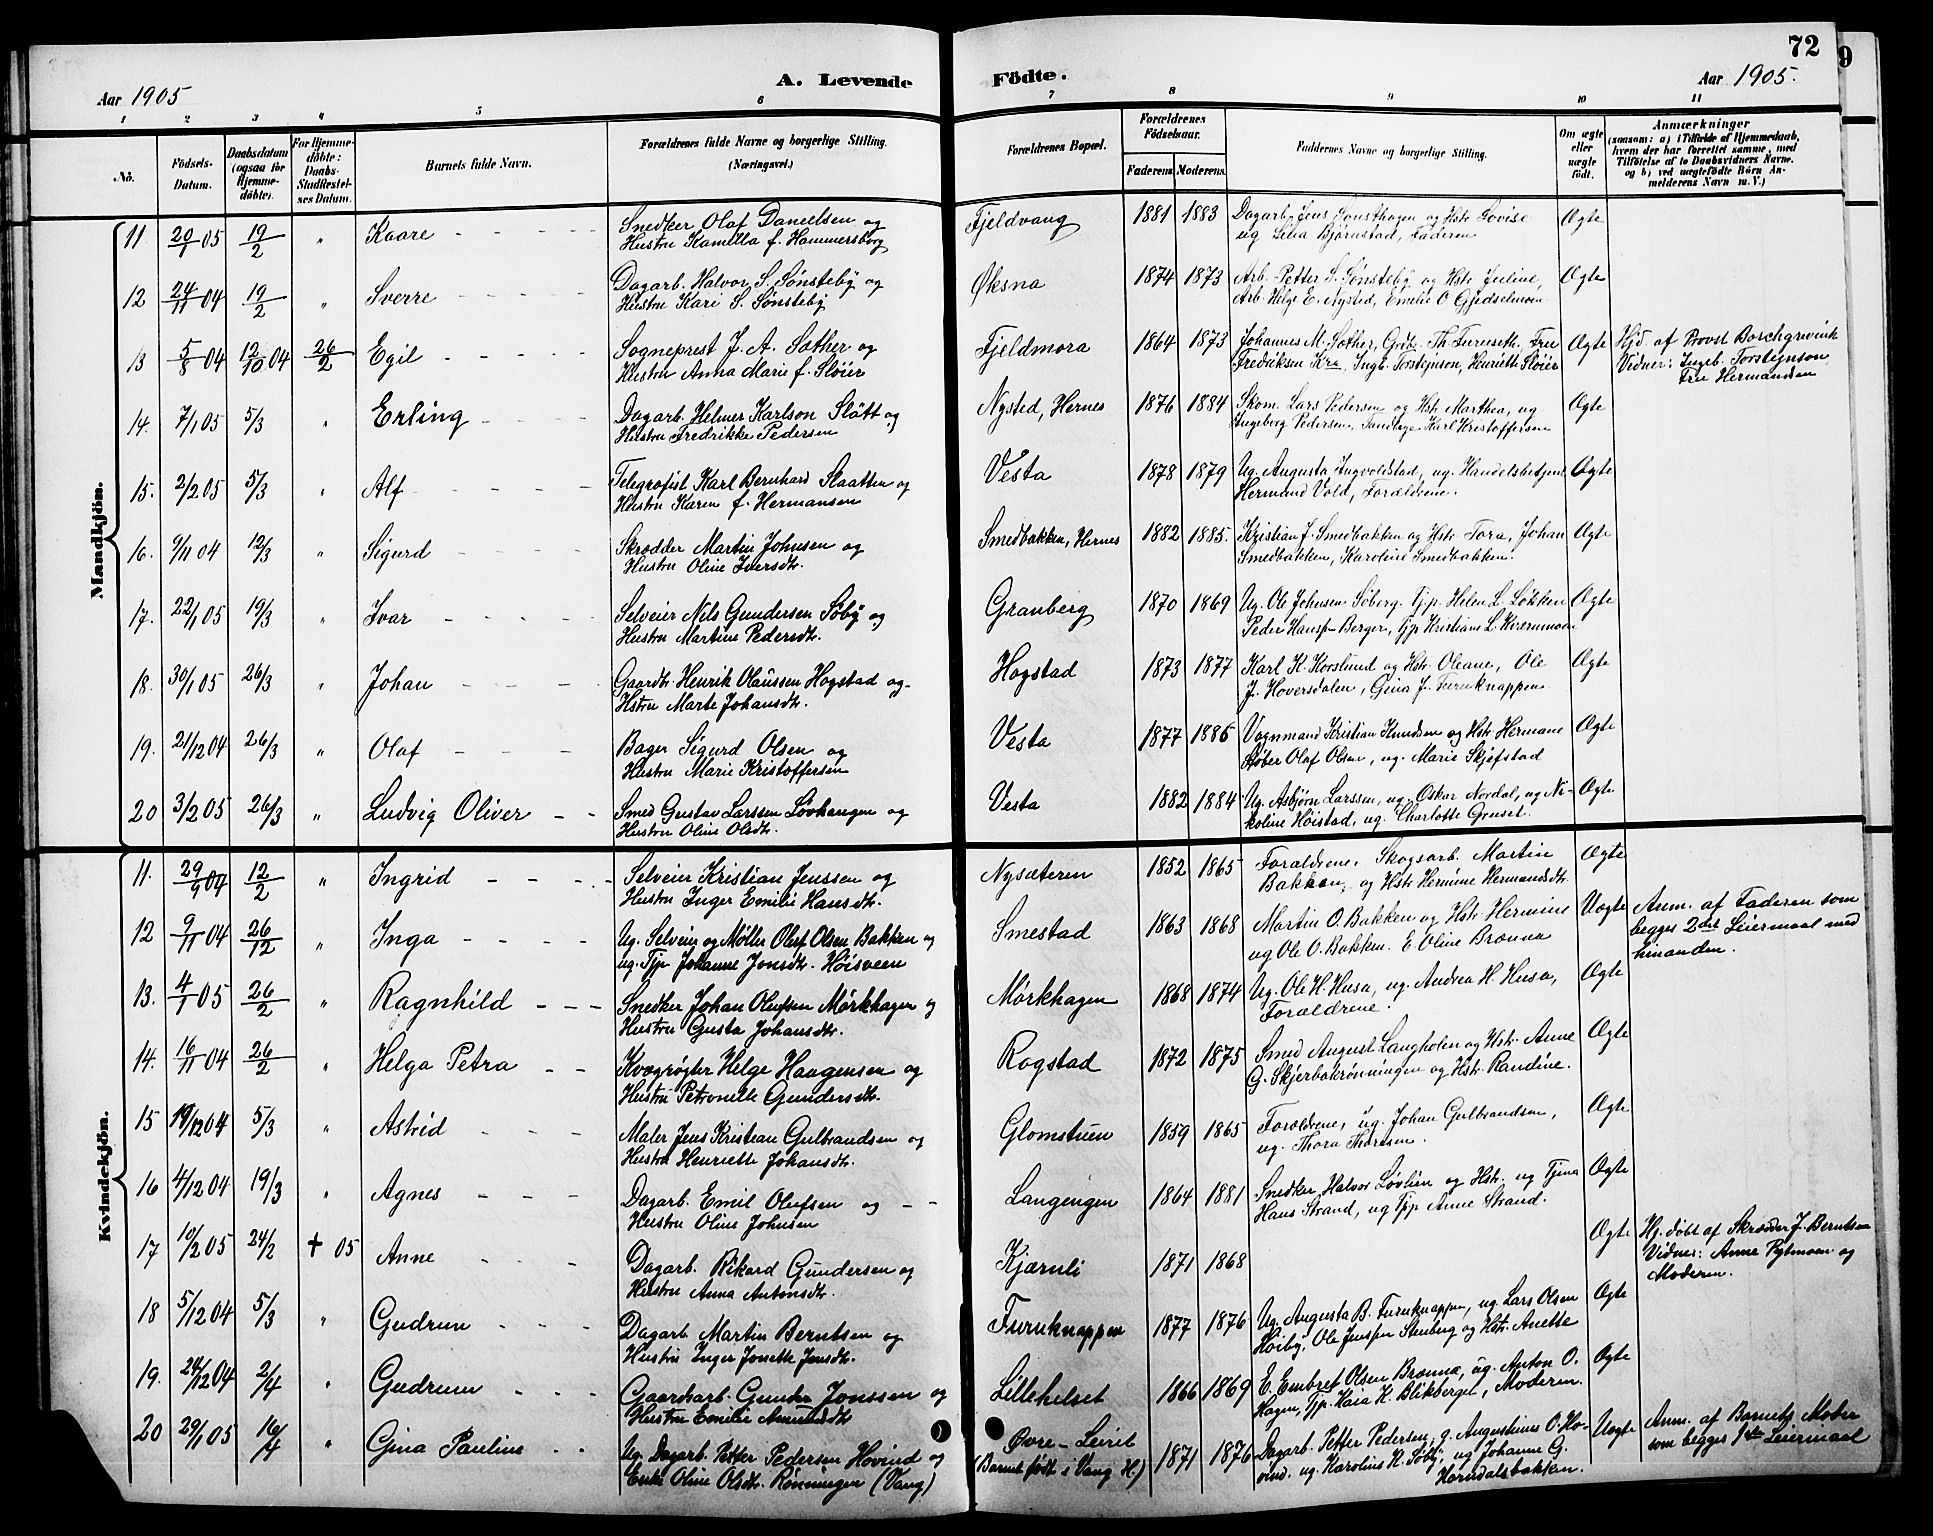 72
9
Aar 1905
A. Levende
Födte.
Aar 1905.
1 2 3 4 5 6 7 8 9 10 11
No.
Födsels-Datum.
Daabsdatum (ogsaa for Hjemme-döbte).
For Hjemme-döbte: Daabs-Stadfæstel-ses Datum.
Barnets fulde Navn.
Forældrenes fulde Navne og borgerlige Stilling. (Næringsvei.)
Forældrenes Bopæl.
Forældrenes Födselsaar.
Faderens. Moderens.
Faddernes Navne og borgerlige Stilling.
Om ægte eller uægte födt.
Anmærkninger
(saasom: a) i Tilfælde af Hjemmedaab, hvem der har forrettet samme, med Tilföielse af to Daabsvidners Navne. og b) ved uægtefödte Börn An-melderens Navn m. V.)
Mandkjön.
11 20/1 05 19/2 " Kaare Snedker Olaf Danielsen og Fjeldvang 1881 1883 Dagarb. Jens Sonsthagen og Hstr Lovise Ægte
Hustru Kamilla f. Hammersborg ug Lina Bjørnstad, Faderen
12 24/11 04 19/2 " Sverre Dagarb. Halvor S. Sønsteby og Øksna 1874 1873 Arb. Petter S. Sønsteby og Hstr Ægte
Hustru Kari S. Sønsteby Arb. Helge E. Nysted, Emelie O Gjedselmoen
13 5/8 04 12/10 04 26/2 Egil Sogneprest J. A. Sæther og Fjeldmora 1864 1873 Johannes M. Sæther, Th. Furuseth, Fru Ægte Hjd. af Provst Borchgrevink
Hustru Anna Marie f. Sløier Fredriksen Kra, Ingb. Torsteinson, Henriette Sløier Vidner: Ingeb. Torsteinson
Fru Hermansen
14. 7/1 05 5/3 " Erling Dagarb. Helmer Karlson Slått og Nysted, Hernes 1876 1884 Skom. Lars Pedersen og Hstr Marthea, ug Ægte
Hustru Fredrikke Pedersen Ingeborg Pedersen, Tandlæge Karl Kristoffersen
15. 2/2 05 5/3 " Alf Telegrafist Karl Bernhard Slaatten og Vesta 1878 1879 Ug. Augusta Ingvoldstad, ug. Handelsbetjent Ægte
Hustru Karen f. Hermansen Hermand Vold, Forældrene.
16. 9/11 04 12/3 " Sigurd Skrædder Martin Johnsen og Smedbakken, Hernes 1882 1885. Kristian J. Smedbakken og Hstr Tora, Johan Ægte
Hustru Oline Iversdtr. Smedbakken, Karoline Smedbakken.
17. 22/1 05 19/3 " Ivar Selveier Nils Gundersen Søby og Granberg 1870 1869 Ug. Ole Johnsen Søberg. Tjp. Helen L. Løkken Ægte
Hustru Martine Pedersdtr. Peder Hansen Berger, Tjp Kristiane L Kværnmoen
18. 30/1 05 26/3 " Johan Gaardbr. Henrik Olaussen Hogstad og Hogstad 1873 1877 Karl K. Korslund og Hstr Oleane, Ole Ægte
Hstru Marte Johansdtr. J. Hoversdalen, Gina J. Furuknappen
19. 21/12 04 26/3 " Olaf Bager Sigurd Olsen og Vesta 1877 1886 Vognmand Kristian Knudsen og Hstr Hermane Ægte
Hustru Marie Kristoffersen Støber Olaf Olsen, ug. Marie Skjefstad
20 3/2 05 26/3 " Ludvig Oliver Smed Gustav Larssen Løvhaugen og Vesta 1882 1884 Ug. Asbjørn Larssen, ug. Oskar Nordal, ug Ni- Ægte
Hustru Oline Olsdtr. koline Høistad, ug. Charlotte Gruset.
Kvindekjön.
11. 29/9 04 12/2 " Ingrid Selveier Kristian Jenssen og Nysæteren 1852 1865 Forældrene, Skogsarb. Martin Ægte
Hustru Inger Emilie Hansdtr. Bakken, og Hstr Hermine Hermandsdtr
12 9/11 04 26/12 " Inga Ug. Selveier og Møller Oluf Olsen Bakken og Smestad 1863 1868 Martin O. Bakken og Hstr Hermine Uægte Anm. af Faderen som
ug. Tjp. Johanne Jonsdtr. Høisveen ug Ole O. Bakken. E. Oline Brænna begges 2det Leiermaal med
hinanden.
13. 4/1 05 26/2 " Ragnhild Snedker Johan Olufsen Mørkhagen og Mørkhagen 1868 1874 Ug. Ole H. Husa, ug. Andrea H. Husa, Ægte
Hustru Gusta Johansdtr. Forældrene.
14. 16/11 04 26/2 " Helga Petra Kvægrøgter Helge Haagensen og Rogstad 1872 1875 Smed August Langholen og Hstr. Anne Ægte
Hustru Petronelle Gundersdtr. G. Skjerbakrønningen og Hstr. Randine.
15 19/12 04 5/3 " Astrid Maler Jens Kristian Gulbrandsen og Glomstuen 1859 1865 Forældrene, ug. Johan Gulbrandsen, Ægte
Hustru Henriette Johansdtr. ug. Thora Thoresen.
16 4/12 04 19/3 " Agnes Dagarb. Emil Olufsen og Langengen 1864 1881 Snedker Halvor Løvlien og Hstr. ug Tjina Ægte
Hustru Oline Johnsen Hans Strand, ug Tjp. Anne Strand.
17 10/2 05 24/2 + 05 Anne Dagarb. Rikard Gundersen og Kjærnli 1871 1868 Ægte Hj. døbt af Skræder J. Berntsen
Hustru Anna Antonsdtr. Vidner: Anne Rytmoen og
Moderen.
18 5/12 04 5/3 " Gudrun Dagarb Martin Berntsen og Furuknappen 1877 1876 Ug. Augusta B. Furuknappen, ug. Lars Olsen Ægte
Hustru Inger Jonette Jensdtr. Høiby, Ole Jenssen Stenberg og Hstr. Anette
19. 24/12 04 2/4 " Gudrun Gaardarb. Gunder Jonssen og Lillehelset 1866 1869 E. Embret Olsen Brænna, ug. Anton O. Ægte
Hustru Emilie Amundsdtr Hagen, Tjp. Kaia K. Blikberget, Moderen.
20 29/1 05 16/4 " Gina Pauline Ug. Dagarb. Petter Pedersen Hovind og Øvre-Leiret 1871 1876 Dagarb. Petter Pedersen, g. Augustinus O. Ho- Uægte Anm. af Barnets Moder
Enke Oline Olsdtr. Rønningen (Vang) (Barnet født i Vang H.) vind, ug. Karolius H. Søby, ug Johanne G. som begges 1ste Leiermaal
Horndalsbakken.